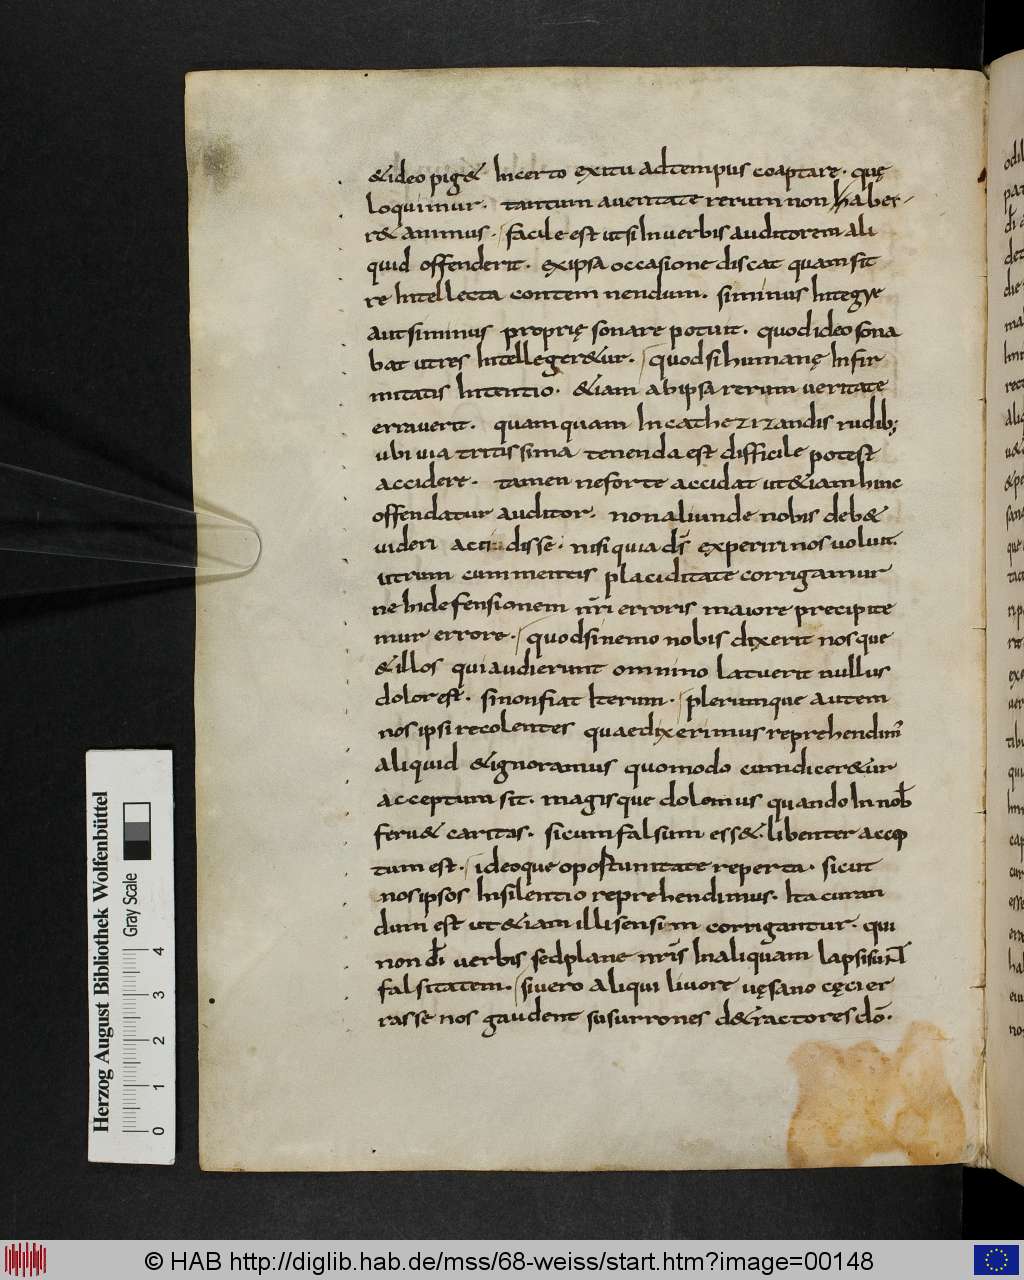 &ideo pig& Incerto exitu adtempus coaptare. quę
loquimur. tantum aueritate rerum non haber
r& animus. facile est utsi Inuerbis auditorem ali
quid offenderit. exipsa occasione discat quamsit
re Intellecta contem nendum. siminus Integre
autsiminus proprię sonare potuit. quod ideo sona
bat utres Intelleger&ur. quodsi humanę Infir
mitatis Intentio. &iam abipsa rerum ueritate
errauerit. quamquam Incathezizandis rudib;
ubi uia tritissima tenenda est difficile potest
accidere. tamen neforte accidat ut&iam hinc
offendatur auditor. non aliunde nobis deb&
uideri acci disse. nisi quia ds̄ experiri nos uoluit.
utrum cummentis placiditate corrigamur
ne Indefensionem nr̄i erroris maiore precipite
mur errore. quodsinemo nobis dixerit nosque
&illos quiaudierunt omnino latuerit nullus
dolorest. sinonfiat Iterum. plerumque autem
nos ipsi recolentes quaedixerimus reprehendim̄
aliquid &ignoramus quomodo cumdicer&ur
acceptum sit. magisque dolemus quando In nob̄
feru& caritas. sicumfalsum ess& libenter accep
tum est. ideoque oportunitate reperta. sicut
nosipsos Insilentio reprehendimus. Ita curan
dum est ut&iam illi sensim corrigantur. qui
non dī uerbis sedplane nr̄is Inaliquam lapsisunt
falsitatem. siuero aliqui liuore uęsano cęci er
rasse nos gaudent susurrones d&ractores dō.
Herzog August Bibliothek Wolfenbüttel
Gray Scale
0 1 2 3 4
© HAB http://diglib.hab.de/mss/68-weiss/start.htm?image=00148